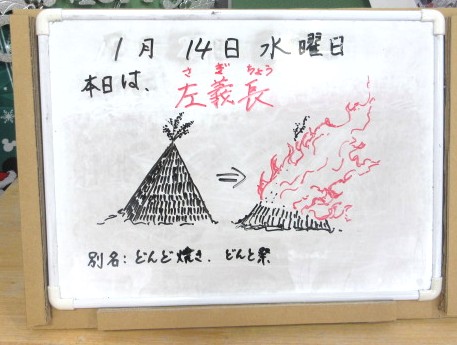 1月 14日 水曜日
さ ぎ ちょう
本日は、左義長
⇒
別名：どんど焼き、どんと祭